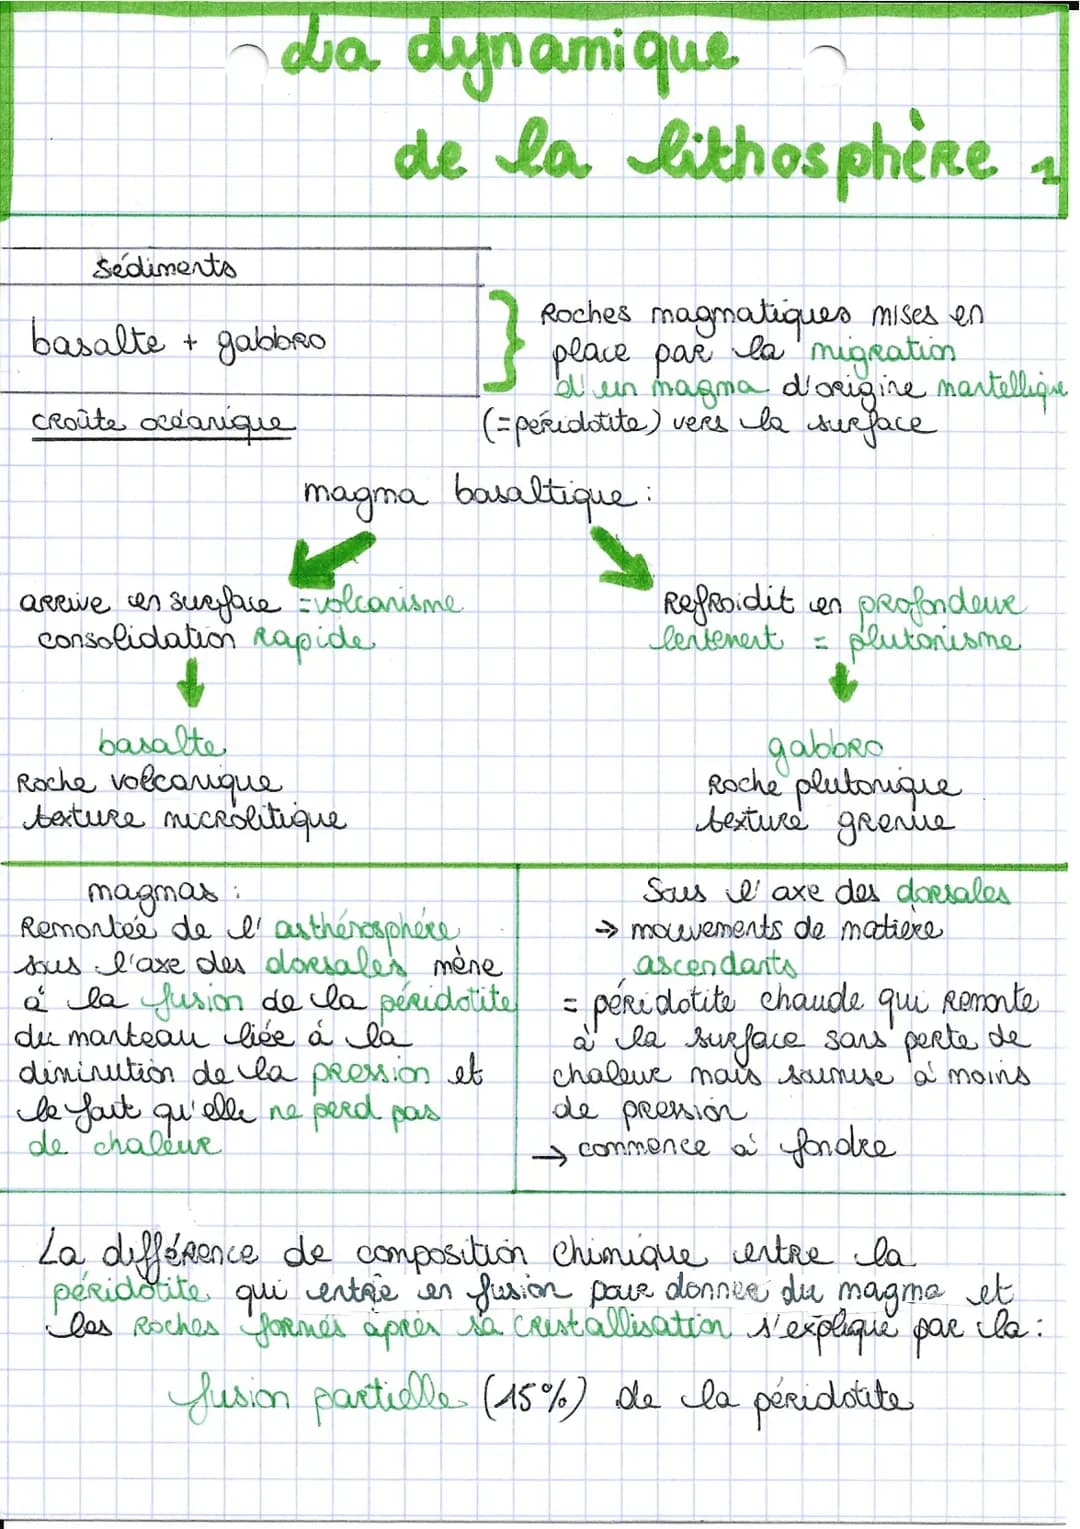 La dynamique
de la lithosphère 1
Sédiments
basalte + gabbro
croûte océanique
Roches magmatiques mises en
place par la migration
d'un magma d'origine mantellique
(=péridotite) vers la surface
magma basaltique :
arrive en surface = volcanisme
consolidation rapide
basalte
Roche volcanique
texture microlitique
Refroidit en profondeur
lentement = plutonisme
gabbro
Roche plutonique
texture grenue
magmas :
Remontée de l'asthénosphère
sous l'axe des dorsales mène
à la fusion de la péridotite
du manteau liée à la
diminution de la pression et
le fait qu'elle ne perd pas
de chaleur
Sous l'axe des dorsales
→ mouvements de matière
ascendants
= péridotite chaude qui remonte
à la surface sans perte de
chaleur mais soumise à moins
de pression
→ commence à fondre
La différence de composition chimique entre la
péridotite qui entre en fusion pour donner du magma et
les Roches formés après sa cristallisation s'explique par la :
fusion partielle (15%) de la péridotite